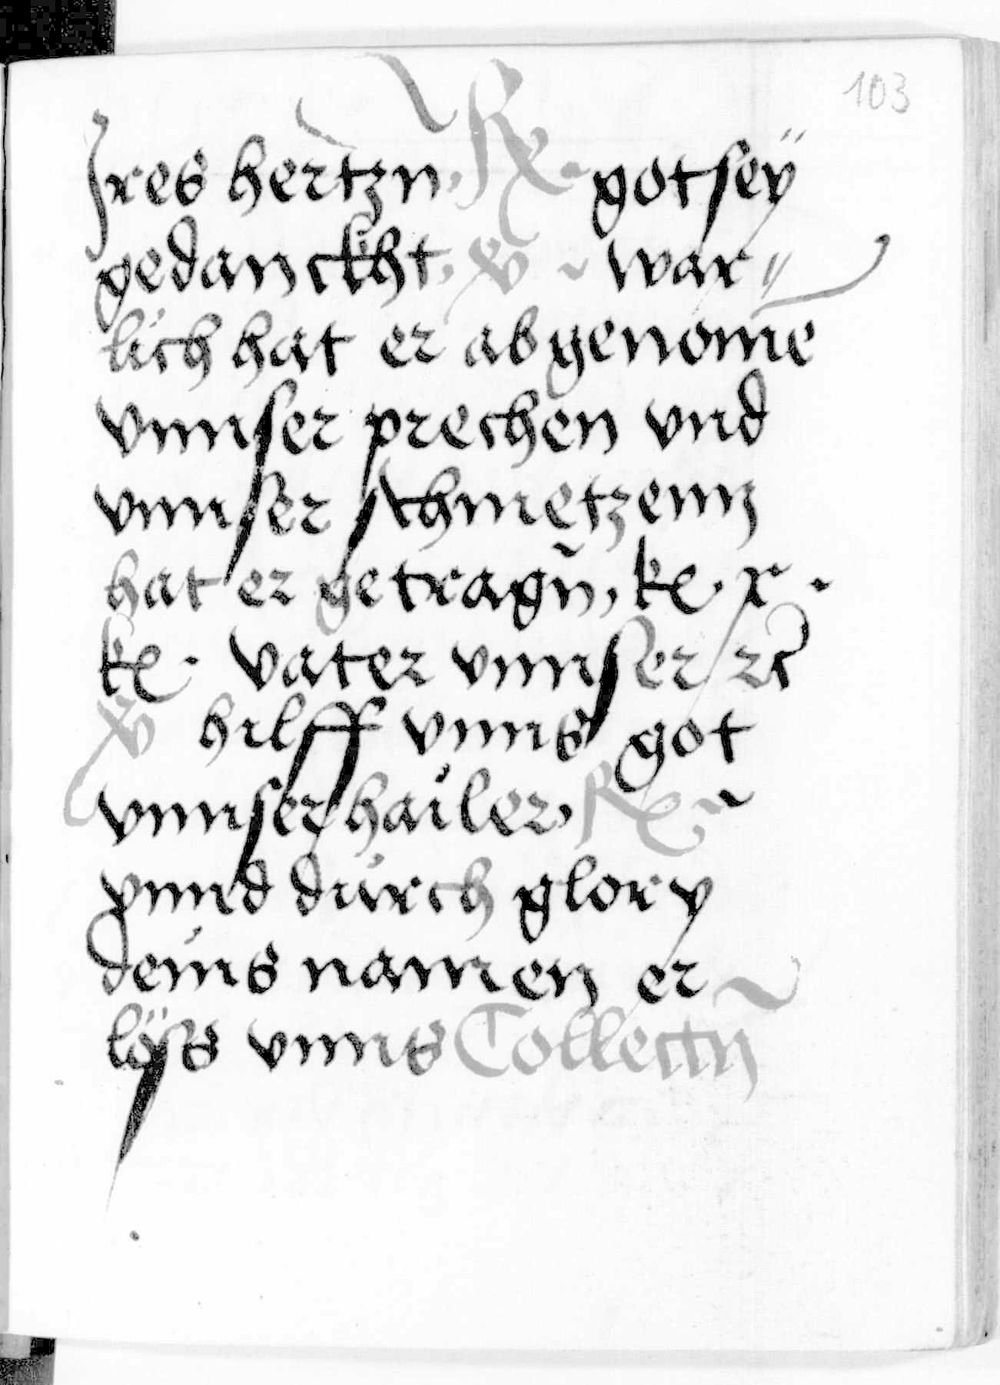 103
Jres hertzn, R. got seÿ
gedanckht, v ~ war〃
lich hat er abgenomē
vnnser prechen vnd
vnnser schmetzenn
hat er getragn̄, ke. x.
ke. vater vnnser ꝛc
v hilff vnns got
vnnser hailer, R.
vnnd durch glory
deins namen er
lÿss vnns Collectn